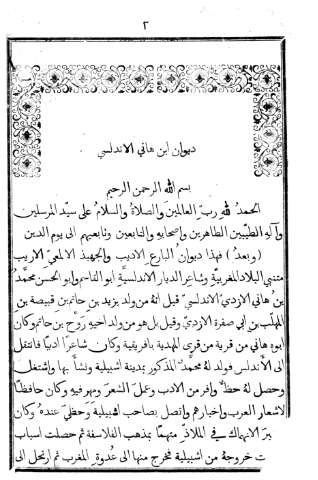 ٢
ديوان ابن هاني الاندلسي
بسم الله الرحمن الرحيم
الحمدُ للهِ ربّ العالمينَ والصلاةُ والسلامُ على سيّد المرسلين
وآلهِ الطيّبين الطاهرين واصحابهِ والتابعين وتابعيهم الى يوم الدين
(وبعد) فهذا ديوانُ البارع الاديب والجهبذ الالمعيّ الاريب
متنبي البلاد المغربيّة وشاعر الديار الاندلسيّة ابو القاسم وابو الحسن محمَّدُ
بنُ هاني الازديّ الاندلسيّ قيل انهُ من ولد يزيد بن حاتم بن قبيصة بن
المهلّب بن ابي صفرة الازديّ وقيل بل هو من ولد اخيهِ رَوْح بن حاتم وكان
ابوهُ هاني من قرية من قرى المهدية بافريقية وكان شاعرًا اديبًا فانتقل
الى الاندلس فولد لهُ محمَّدٌ المذكور بمدينة اشبيلية ونشأ بها واشتغل
وحصل لهُ حظٌّ وافر من الادب وعمل الشعرَ ومهر فيهِ وكان حافظًا
لاشعار العرب واخبارهم واتصل بصاحب اشبيلية وحظيَ عندهُ وكان
الانهماك في الملاذّ متهمًا بمذهب الفلاسفة ثم حصلت اسباب
خروجهُ من اشبيلية فخرج منها الى عُدوة المغرب ثم ارتحل الى